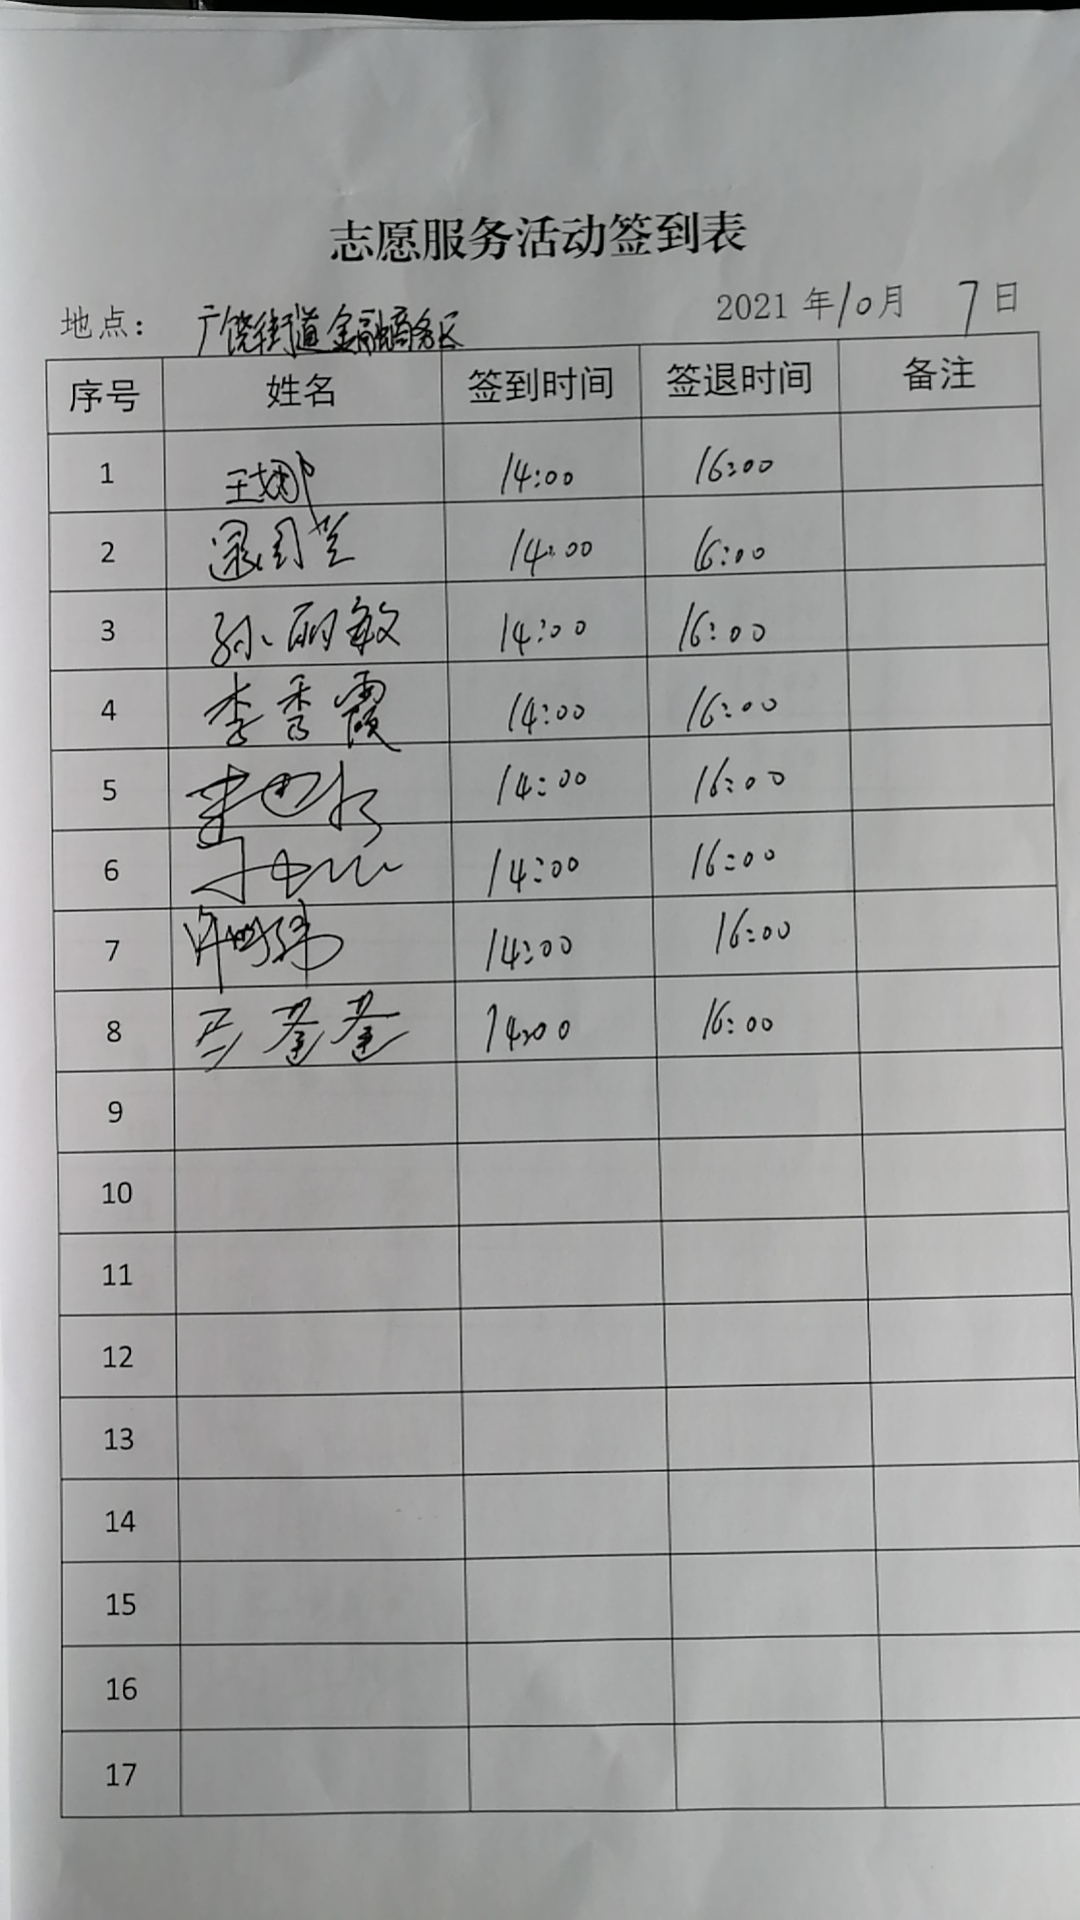 志愿服务活动签到表
地点： 广饶街道金融商务区 2021 年10月 7日
序号 姓名 签到时间 签退时间 备注
1 王娜 14:00 16:00
2 14:00 16:00
3 孙丽敏 14:00 16:00
4 李秀霞 14:00 16:00
5 14:00 16:00
6 14:00 16:00
7 14:00 16:00
8 14:00 16:00
9
10
11
12
13
14
15
16
17